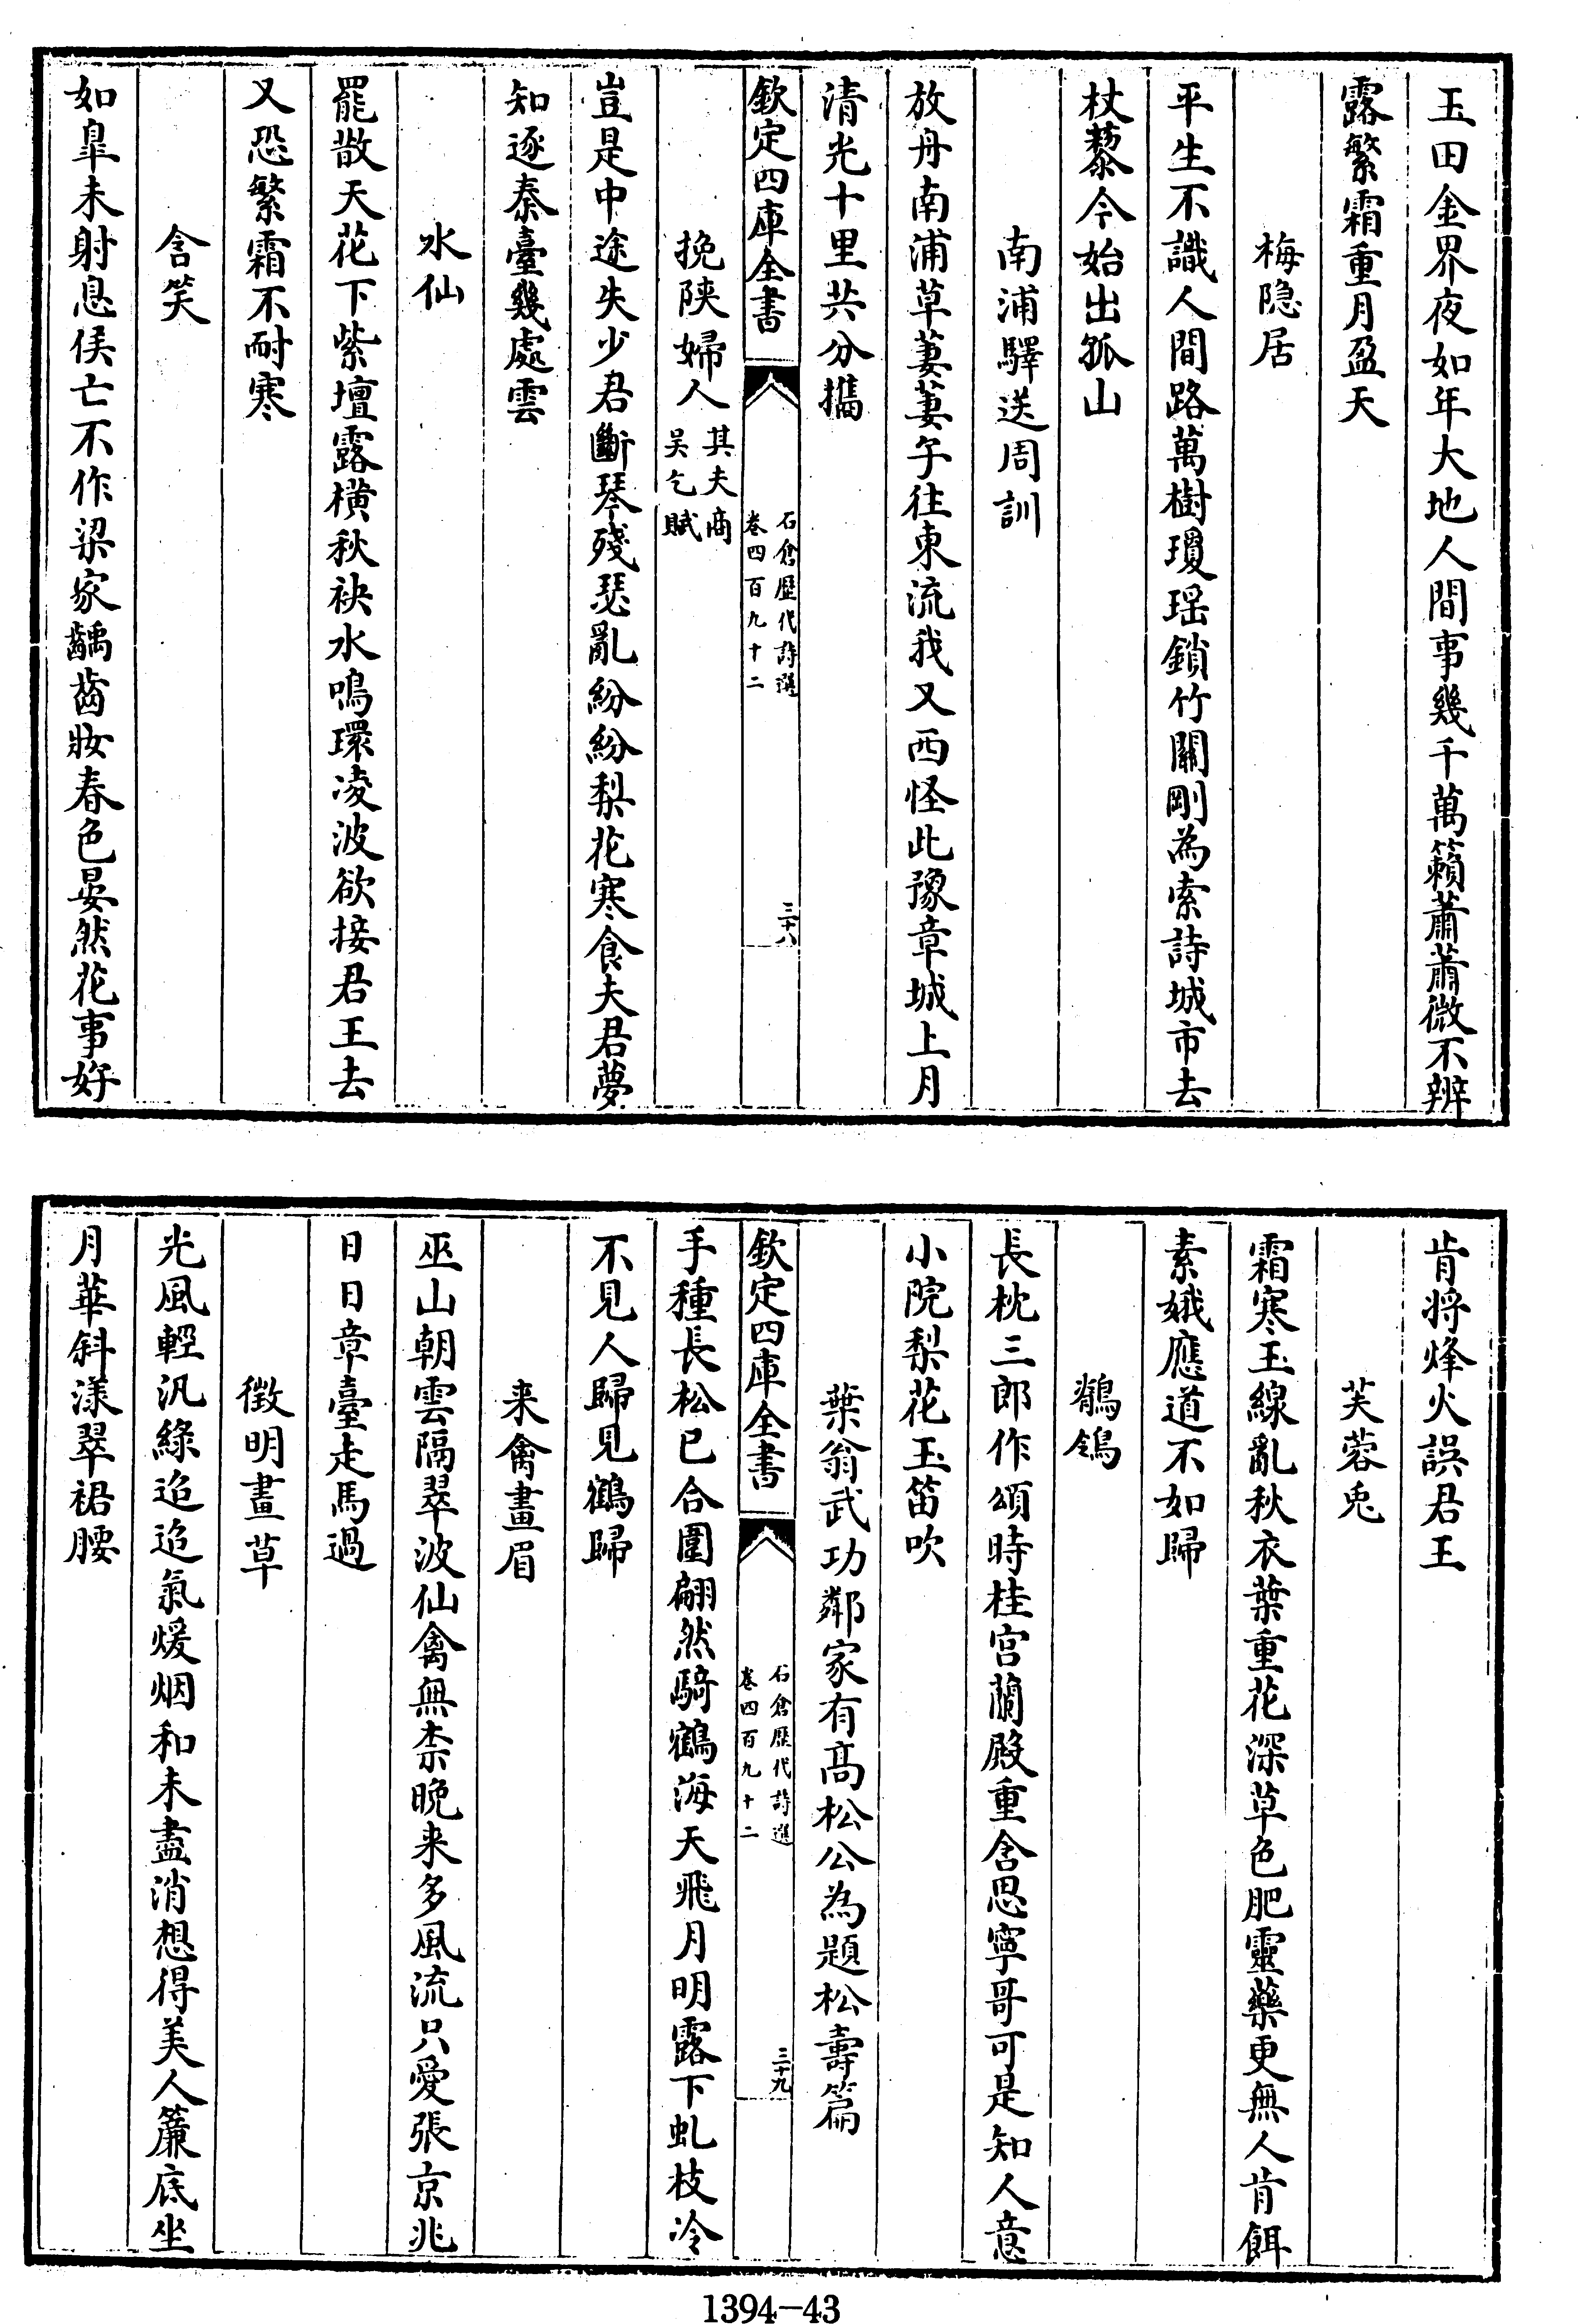 玉田金界夜如年大地人間事幾千萬籟蕭蕭微不辨
露繁霜重月盈天
梅隐居
平生不識人間路萬樹瓊瑶鎖竹關剛為索詩城市去
杖藜今始出孤山
南浦驛送周訓
放舟南浦草萋萋午往東流我又西怪此豫章城上月
清光十里共分攜
欽定四庫全書
石倉歷代詩選
卷四百九十二
三十八
挽陝婦人其夫商
吴乞賦
豈是中途失少君斷琴殘瑟亂紛紛梨花寒食夫君夢
知逐秦臺幾處雲
水仙
罷散天花下紫壇露橫秋袂水鳴環凌波欲接君王去
又恐繁霜不耐寒
含笑
如臯未射息侯亡不作梁家齲齒妝春色晏然花事好
肯將烽火誤君王
芙蓉兎
霜寒玉線亂秋衣葉重花深草色肥靈藥更無人肯餌
素娥應道不如歸
鶺鴒
長枕三郎作頌時桂宫蘭殿重含思寧哥可是知人意
小院梨花玉笛吹
葉翁武功鄰家有髙松公為題松壽篇
欽定四庫全書
石倉歷代詩選
卷四百九十二
三十九
手種長松已合圍翩然騎鶴海天飛月明露下虬枝冷
不見人歸見鶴歸
来禽畫眉
巫山朝雲隔翠波仙禽無柰晚来多風流只愛張京兆
日日章臺走馬過
徴明畫草
光風輕汎綠迢迢氣煖烟和未盡消想得美人簾底坐
月華斜漾翠裙腰
1394-43